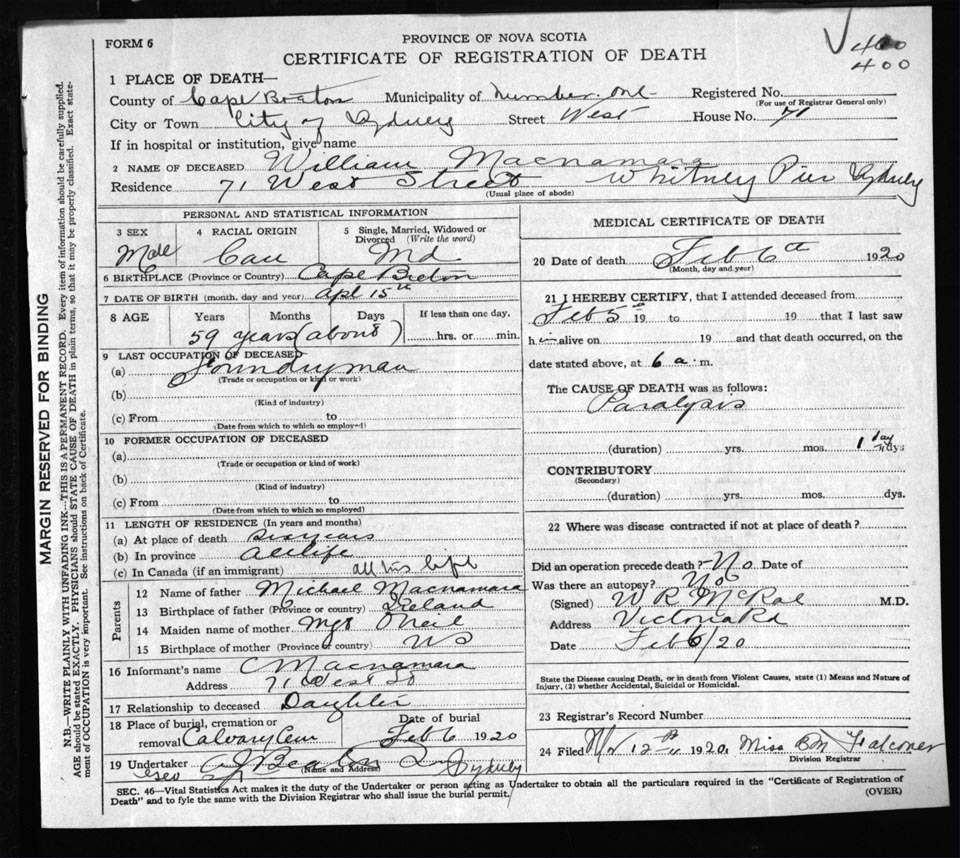 FORM 6
PROVINCE OF NOVA SCOTIA
CERTIFICATE OF REGISTRATION OF DEATH
400
400
1 PLACE OF DEATH—
County of Cape Breton Municipality of Number one Registered No.
(For use of Registrar General only)
City or Town City of Sydney Street West House No. 71
If in hospital or institution, give name
2 NAME OF DECEASED William Macnamara
Residence 71 West Street Whitney Pier Sydney
(Usual place of abode)
PERSONAL AND STATISTICAL INFORMATION
3 SEX 4 RACIAL ORIGIN 5 Single, Married, Widowed or Divorced (Write the word)
Male Cau Md
6 BIRTHPLACE (Province or Country) Cape Breton
7 DATE OF BIRTH (month, day and year) Apl 15th
8 AGE Years Months Days If less than one day,
59 years (about) hrs. or min.
9 LAST OCCUPATION OF DECEASED
(a) Foundryman
(Trade or occupation or kind or work)
(b)
(Kind of industry)
(c) From to
(Date from which to which so employed)
10 FORMER OCCUPATION OF DECEASED
(a)
(Trade or occupation or kind of work)
(b)
(Kind of industry)
(c) From to
(Date from which to which so employed)
11 LENGTH OF RESIDENCE (In years and months)
(a) At place of death years
(b) In province all life
(c) In Canada (if an immigrant) all his life
Parents
12 Name of father Michael Macnamara
13 Birthplace of father (Province or country) Ireland
14 Maiden name of mother O'Neil
15 Birthplace of mother (Province or country)
16 Informant's name C Macnamara
Address 71 West St
17 Relationship to deceased Daughter
18 Place of burial, cremation or removal Calvary Cem Date of burial Feb 6 1920
19 Undertaker Beaton Sydney
(Name and Address)
MEDICAL CERTIFICATE OF DEATH
20 Date of death Feb 6th 1920
(Month, day and year)
21 I HEREBY CERTIFY, that I attended deceased from
Feb 5th 19 to 19 that I last saw
h alive on 19 and that death occurred, on the
date stated above, at 6 a. m.
The CAUSE OF DEATH was as follows:
Paralysis
(duration) yrs. mos. 1 day dys
CONTRIBUTORY
(Secondary)
(duration) yrs. mos. dys.
22 Where was disease contracted if not at place of death?
Did an operation precede death? No Date of
Was there an autopsy? No
(Signed) W R McRae M.D.
Address Victoria Rd
Date Feb 6/20
State the Disease causing Death, or in death from Violent Causes, state (1) Means and Nature of
Injury, (2) whether Accidental, Suicidal or Homicidal.
23 Registrar's Record Number
24 Filed 12th 1920. Miss B M Falconer
Division Registrar
SEC. 46—Vital Statistics Act makes it the duty of the Undertaker or person acting as Undertaker to obtain all the particulars required in the "Certificate of Registration of
Death" and to fyle the same with the Division Registrar who shall issue the burial permit.
(OVER)
MARGIN RESERVED FOR BINDING
N.B.—WRITE PLAINLY WITH UNFADING INK—THIS IS A PERMANENT RECORD. Every item of information should be carefully supplied.
AGE should be stated EXACTLY. PHYSICIANS should STATE CAUSE OF DEATH in plain terms, so that it may be properly classified. Exact state-
ment of OCCUPATION is very important. See instructions on back of Certificate.